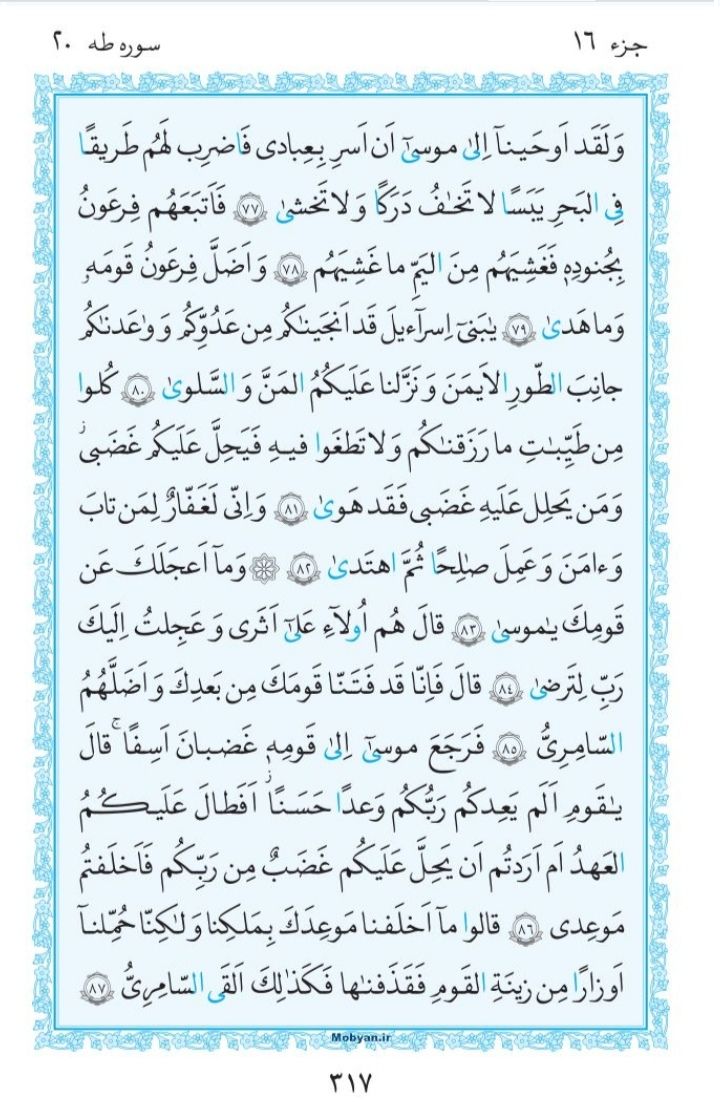 جزء ١٦
سوره طه ٢٠
وَلَقَد اَوحَینآ اِلیٰ موسیٰٓ اَن اَسرِ بِعِبادی فَاضرِب لَهُم طَریقًا
فِی البَحرِ یَبَسًا لا تَخٰفُ دَرَکًا وَ لا تَخشیٰ ٧٧ فَاَتبَعَهُم فِرعَونُ
بِجُنودِهٖ فَغَشِیَهُم مِنَ الیَمِّ ما غَشِیَهُم ٧٨ وَ اَضَلَّ فِرعَونُ قَومَهٗ
وَما هَدیٰ ٧٩ یٰبَنیٓ اِسرآءیلَ قَد اَنجَینٰکُم مِن عَدُوِّکُم وَ وٰعَدنٰکُم
جانِبَ الطّورِ الاَیمَنَ وَ نَزَّلنا عَلَیکُمُ المَنَّ وَ السَّلویٰ ٨٠ کُلوا
مِن طَیِّبٰتِ ما رَزَقنٰکُم وَ لا تَطغَوا فیهِ فَیَحِلَّ عَلَیکُم غَضَبی ز
وَ مَن یَحلِل عَلَیهِ غَضَبی فَقَد هَویٰ ٨١ وَ اِنّی لَغَفّارٌ لِمَن تابَ
وَ ءامَنَ وَ عَمِلَ صٰلِحًا ثُمَّ اهتَدیٰ ٨٢ ۞ وَمآ اَعجَلَکَ عَن
قَومِکَ یٰموسیٰ ٨٣ قالَ هُم اُولآءِ عَلیٰٓ اَثَری وَ عَجِلتُ اِلَیکَ
رَبِّ لِتَرضیٰ ٨٤ قالَ فَاِنّا قَد فَتَنّا قَومَکَ مِن بَعدِکَ وَ اَضَلَّهُمُ
السّامِریُّ ٨٥ فَرَجَعَ موسیٰٓ اِلیٰ قَومِهٖ غَضبانَ اَسِفًا ۚ قالَ
یٰقَومِ اَلَم یَعِدکُم رَبُّکُم وَعدًا حَسَنًا ز اَفَطالَ عَلَیکُمُ
العَهدُ اَم اَرَدتُم اَن یَحِلَّ عَلَیکُم غَضَبٌ مِن رَبِّکُم فَاَخلَفتُم
مَوعِدی ٨٦ قالوا مآ اَخلَفنا مَوعِدَکَ بِمَلکِنا وَ لٰکِنّا حُمِّلنآ
اَوزارًا مِن زینَةِ القَومِ فَقَذَفنٰها فَکَذٰلِکَ اَلقَی السّامِریُّ ٨٧
Mobyan.ir
٣١٧